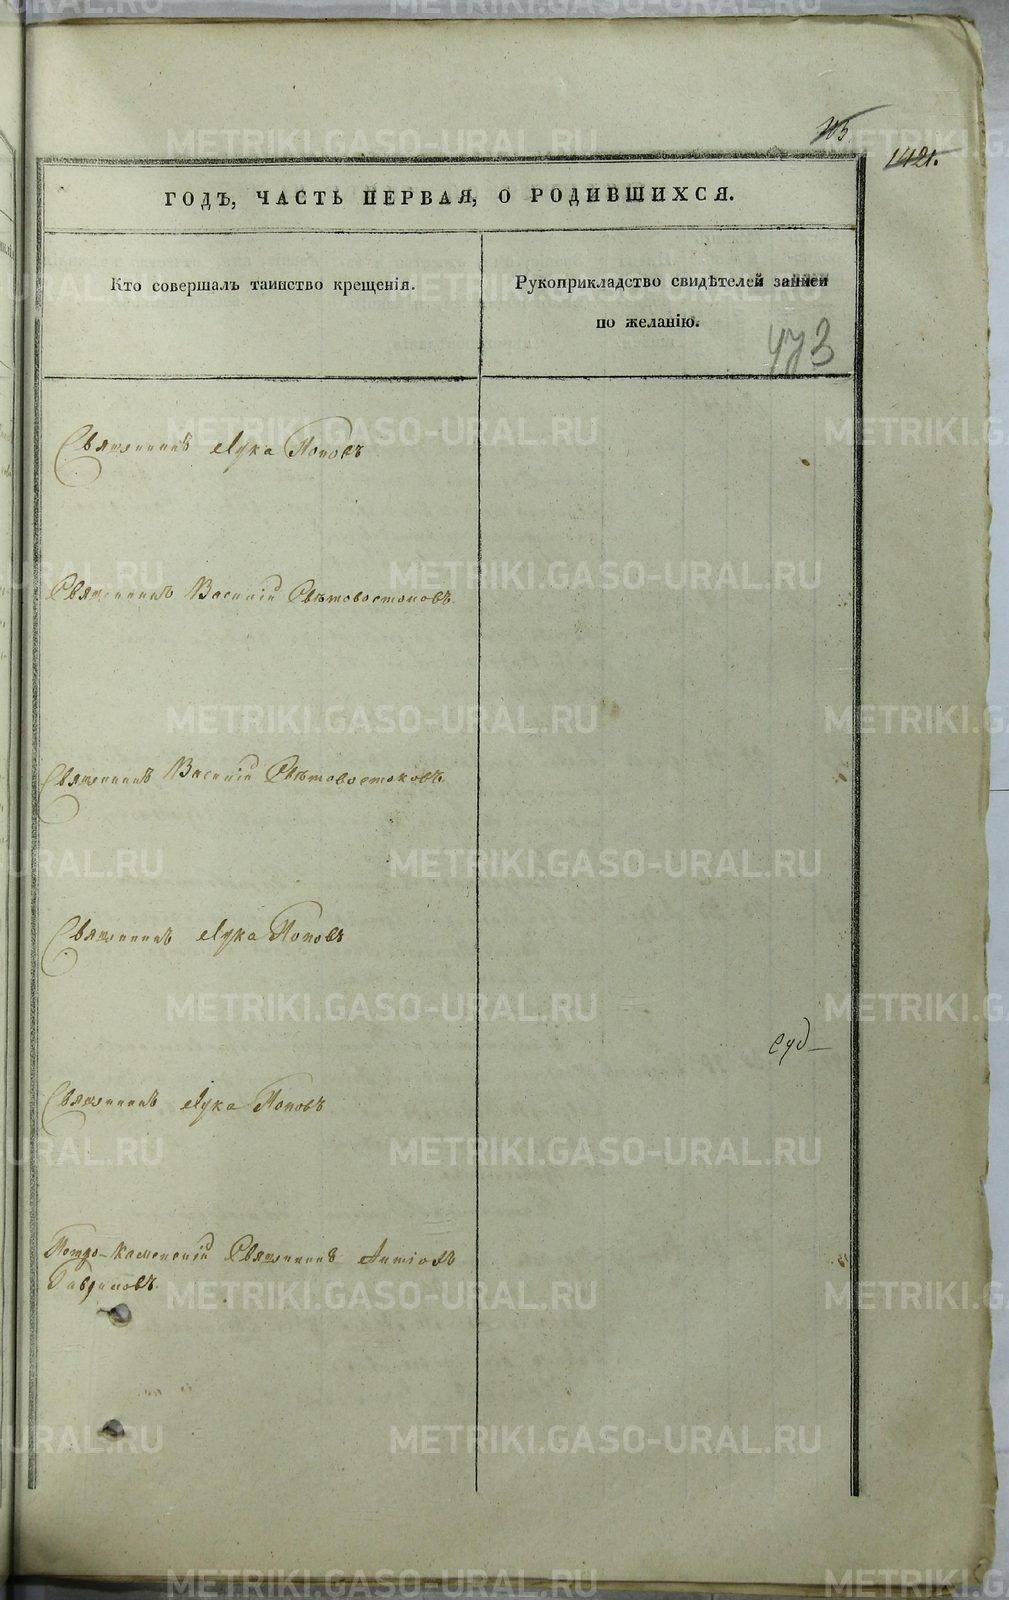 1421.
ГОДЪ, ЧАСТЬ ПЕРВАЯ, О РОДИВШИХСЯ.
Кто совершалъ таинство крещенія.
Рукоприкладство свидѣтелей записи
по желанію.
473
Священникъ Лука Поповъ
Священникъ Василій Свѣтовостоковъ.
Священникъ Василій Свѣтовостоковъ
Священникъ Лука Поповъ
Священникъ Лука Поповъ
Петро-Каменскій Священникъ Антіохъ
Гавриловъ.
METRIKI.GASO-URAL.RU